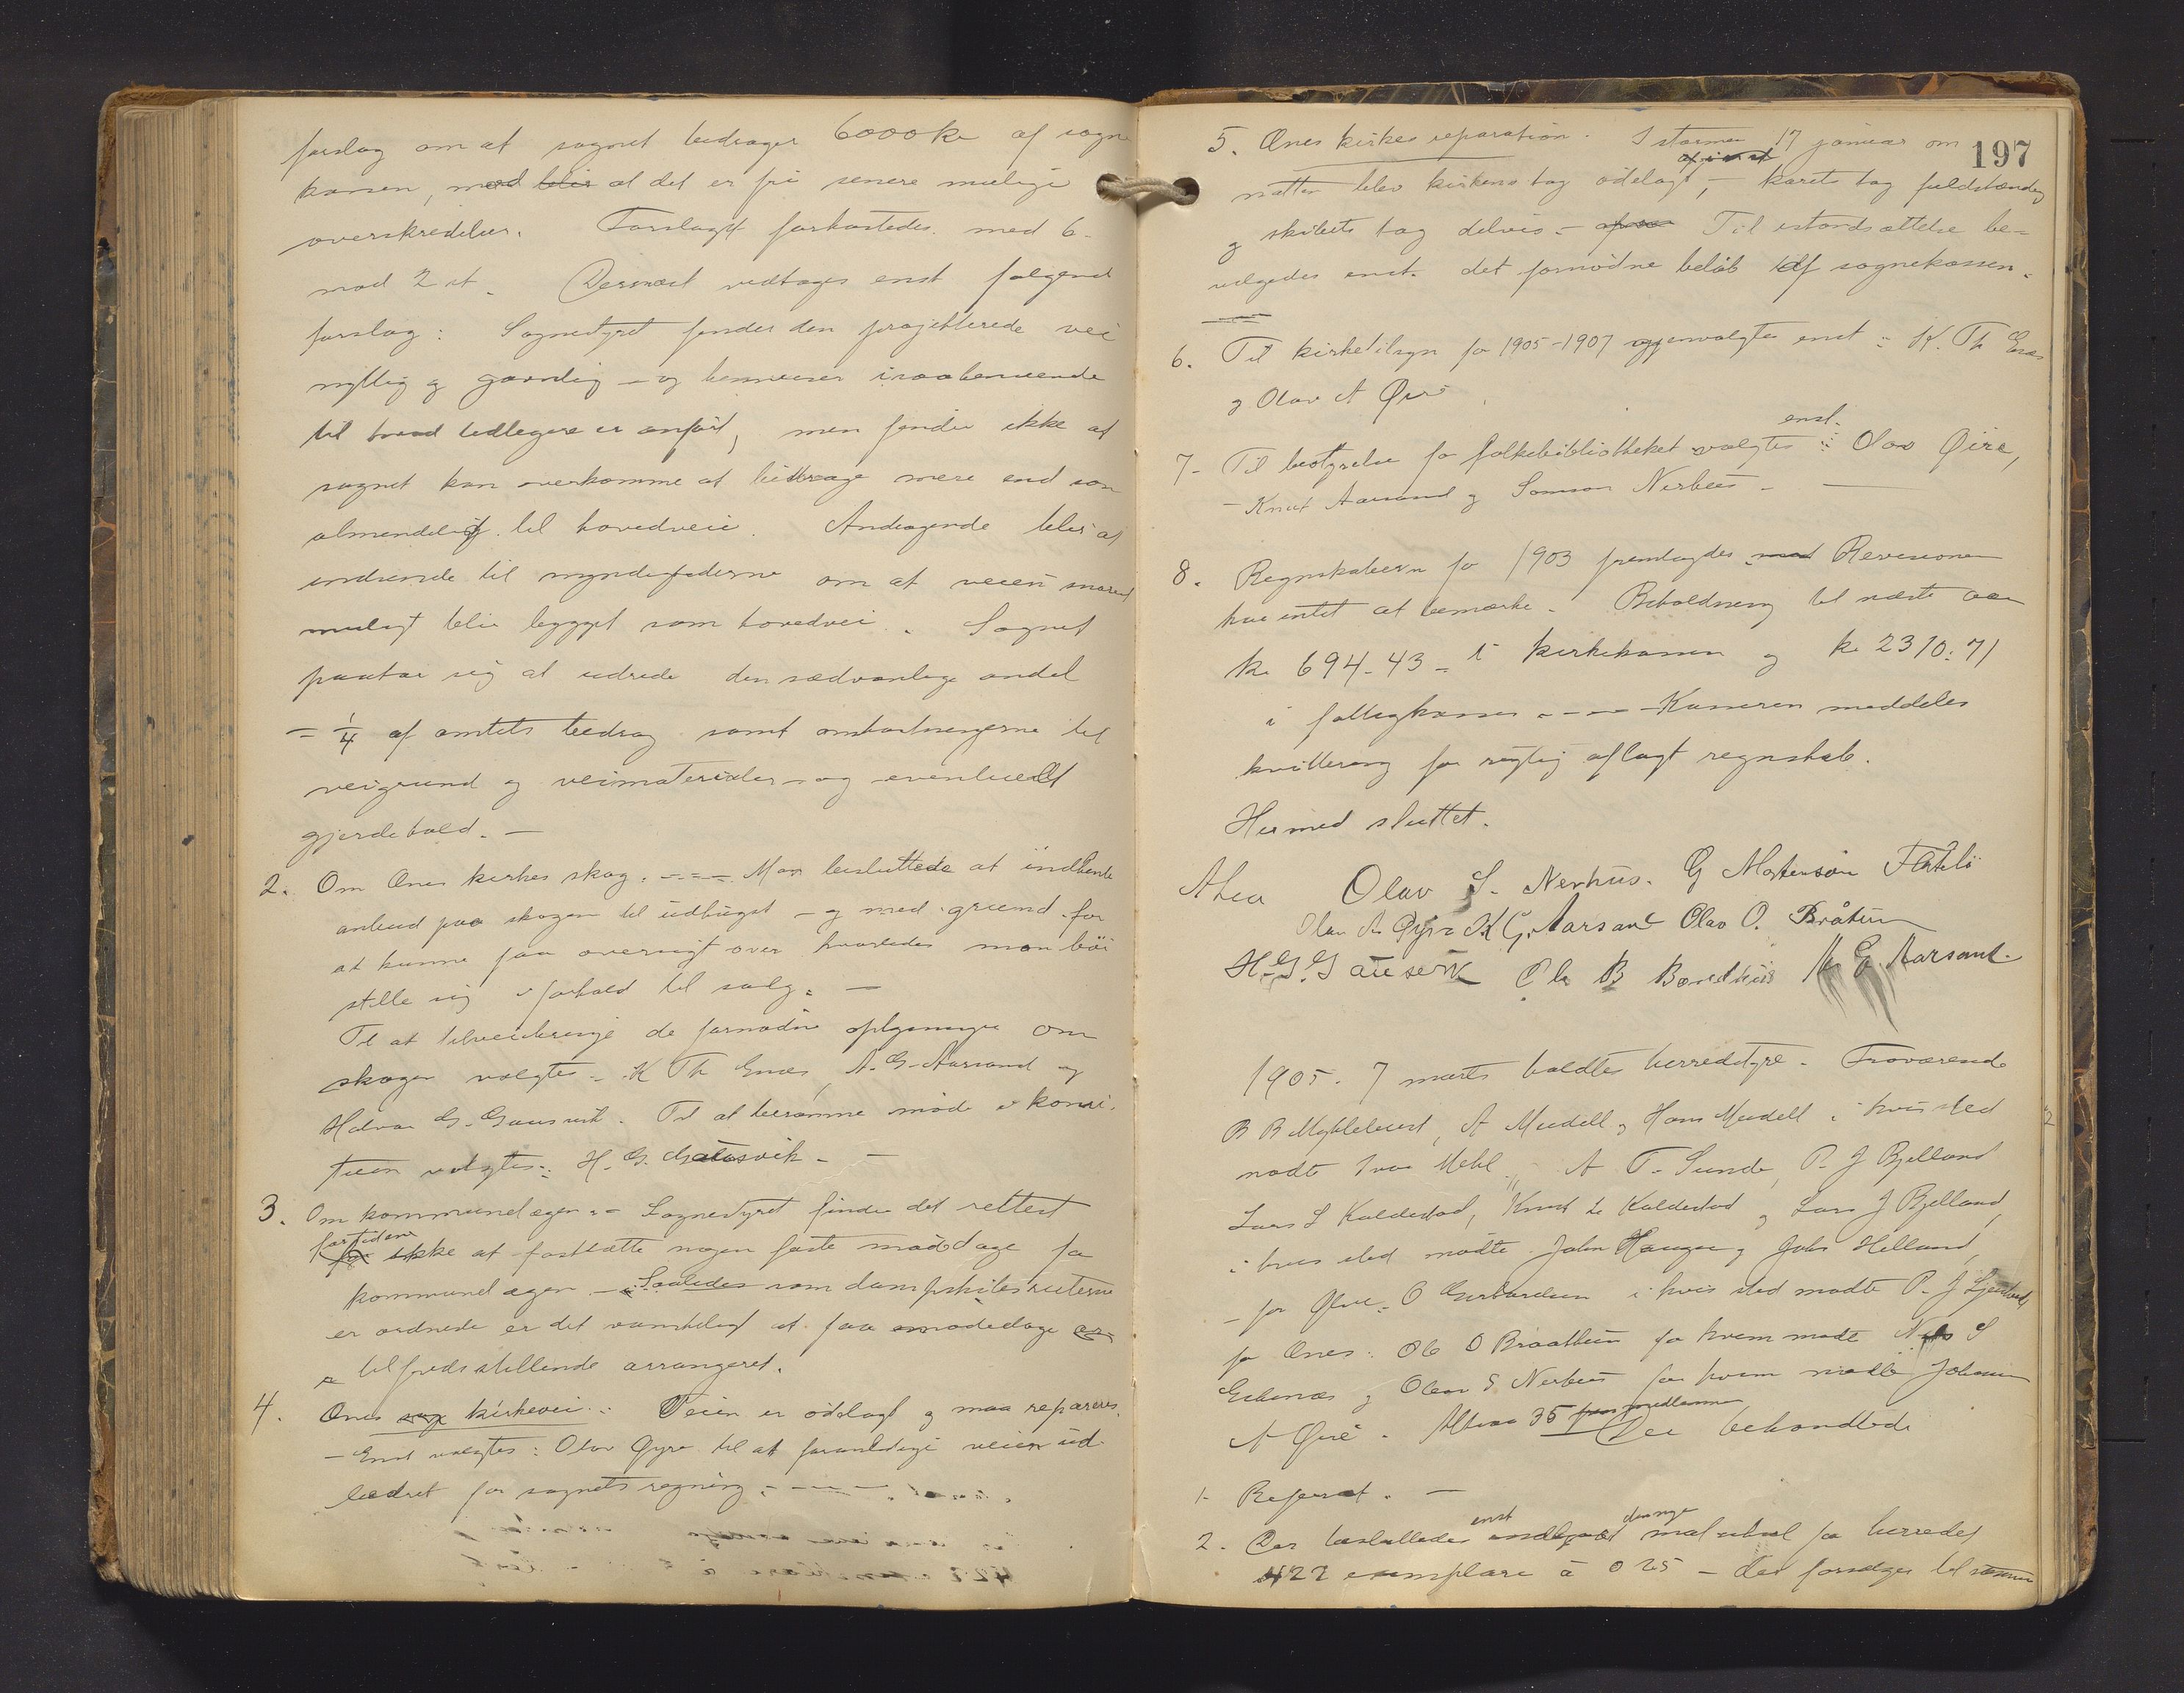 forslag om at sognet bidrager 6000 kr af sogne
kassen, mod blir at det er fri senere mulige
overskredelser. Forslaget forkastedes med 6
mod 2 st. Dernæst vedtoges enst følgend
forslag: Sognestyret finder den projekterede vei
nyttig og gavnlig – og henviser
til hvad tidligere er anført, men finder ikke at
sognet kan overkomme at bidrage mere end som
almendelig til hovedveie. Andragende blir at
indsende til myndighederne om at veien snarest
muligt blir bygget som hovedvei. Sognet
paatar sig at udrede den sædvanlige andel
– 1/4 af amtets bidrag samt omkostningerne til
veigrund og veimaterialer – og eventuellt
gjerdehold. –
2. Om Ænes kirkes skog. – Man besluttede at indhente
anbud paa skogen til udhugst – og med grund for
at kunne faa oversigt over hvorledes man bør
stille sig i forhold til salg. –
Til at tilveiebringe de fornødne oplysninger om
skogen valgtes – K Th Enæs, A. G. Aarsand og
Halvor G. Gausvik. Til at beramme møde i komi-
teen valgtes: H. G. Gausvik – –
3. Om kommunelægen – Sognestyret finder det rettest
fortiden
ikke at fastsætte nogen faste mødedage for
kommunelægen – Saaledes som dampskibsruterne
er ordnede er det vanskeligt at faa mødedage
tilfredsstillende arrangeret.
4. Ænes kirkevei: Veien er ødelagt og maa repareres.
– Enst valgtes: Olav Øyre til at foranledige veien ud-
bedret for sognets regning. – – –
197
5. Ænes kirkes reparation. I stormen 17 januar om
natten blev kirkens tag ødelagt, – korets tag fuldstændig
og skibets tag delvis – Til istandsættelse be-
vilgedes enst. det fornødne beløb af sognekassen.
6. Til kirketilsyn for 1905-1907 gjenvalgtes enst: K. Th Enæs
og Olav A Øire
enst.
7. Til bestyrelse for folkebibliotheket valgtes: Olav Øire,
– Knut Aarsand og Samson Nerhus –
8. Regnskaberne for 1903 fremlagdes Revisionen
har intet at bemærke. Beholdning til næste aar
kr 694-43 i kirkekassen og kr 2310.71
i fattigkassen – – – Kasseren meddeles
kvittering for rigtig aflagt regnskab.
Hermed sluttet.
Olav S. Nerhus. G Mortenson
Olav A. Øyre K G. Aarsand Olav O. Bråtun
H. G. Gausvik Ole B Bondhus A G. Aarsand.
1905. 7 marts holdtes herredstyre. Fraværende
B B Myklebust, A Mudell og Hans Mudell i hvis sted
mødte Ivar Mehl, A T. Sunde, P. J Bjelland
Lars L Kaldestad, Knut L Kaldestad og Lars J Bjelland,
i hvis sted mødte John Haugen og John Helland,
– for Ølve: O Gerhardsen i hvis sted mødte P. J
for Ænes: Ole O Braathun for hvem mødte Nils S
og Olav S Nerhus for hvem mødte Johannes
A Øire. Altsaa 35 Der behandledes
1. Referat. –
enst
2. Der besluttedes for herredet
422 exemplare à 0 25 – der forsøges til